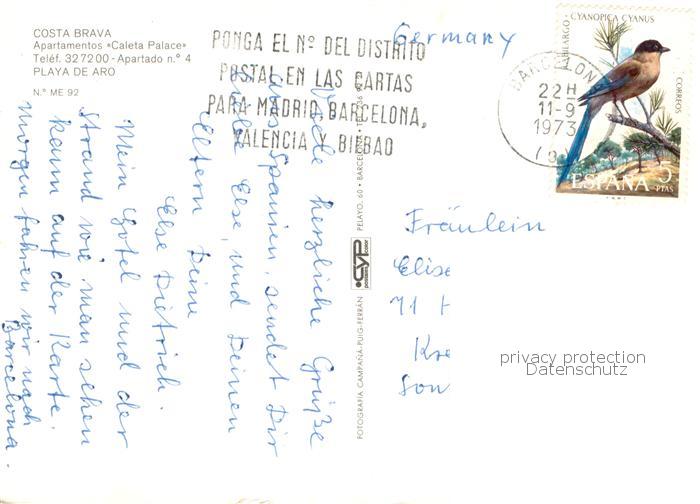 COSTA BRAVA
Apartamentos «Caleta Palace»
Teléf. 327200 - Apartado n.° 4
PLAYA DE ARO
N.° ME 92
PONGA EL Nº DEL DISTRITO
POSTAL EN LAS CARTAS
PARA MADRID, BARCELONA,
VALENCIA Y BILBAO
Germany
BARCELONA
22 H
11-9
1973
RABILARGO
CYANOPICA CYANUS
CORREOS
ESPAÑA 5 PTAS
Viele herzliche Grüße
aus Spanien, sendet Dir
liebe Else, und Deinen
Eltern Deine
Else Dietrich.
Mein Hotel und der
Strand wie man sehen
kann auf der Karte.
Morgen fahren wir nach
Barcelona.
FOTOGRAFÍA CAMPAÑÁ-PUIG-FERRÁN
CYP
postal color
PELAYO, 60 • BARCELONA
Fräulein
Elise
71
Kre
Son
privacy protection
Datenschutz